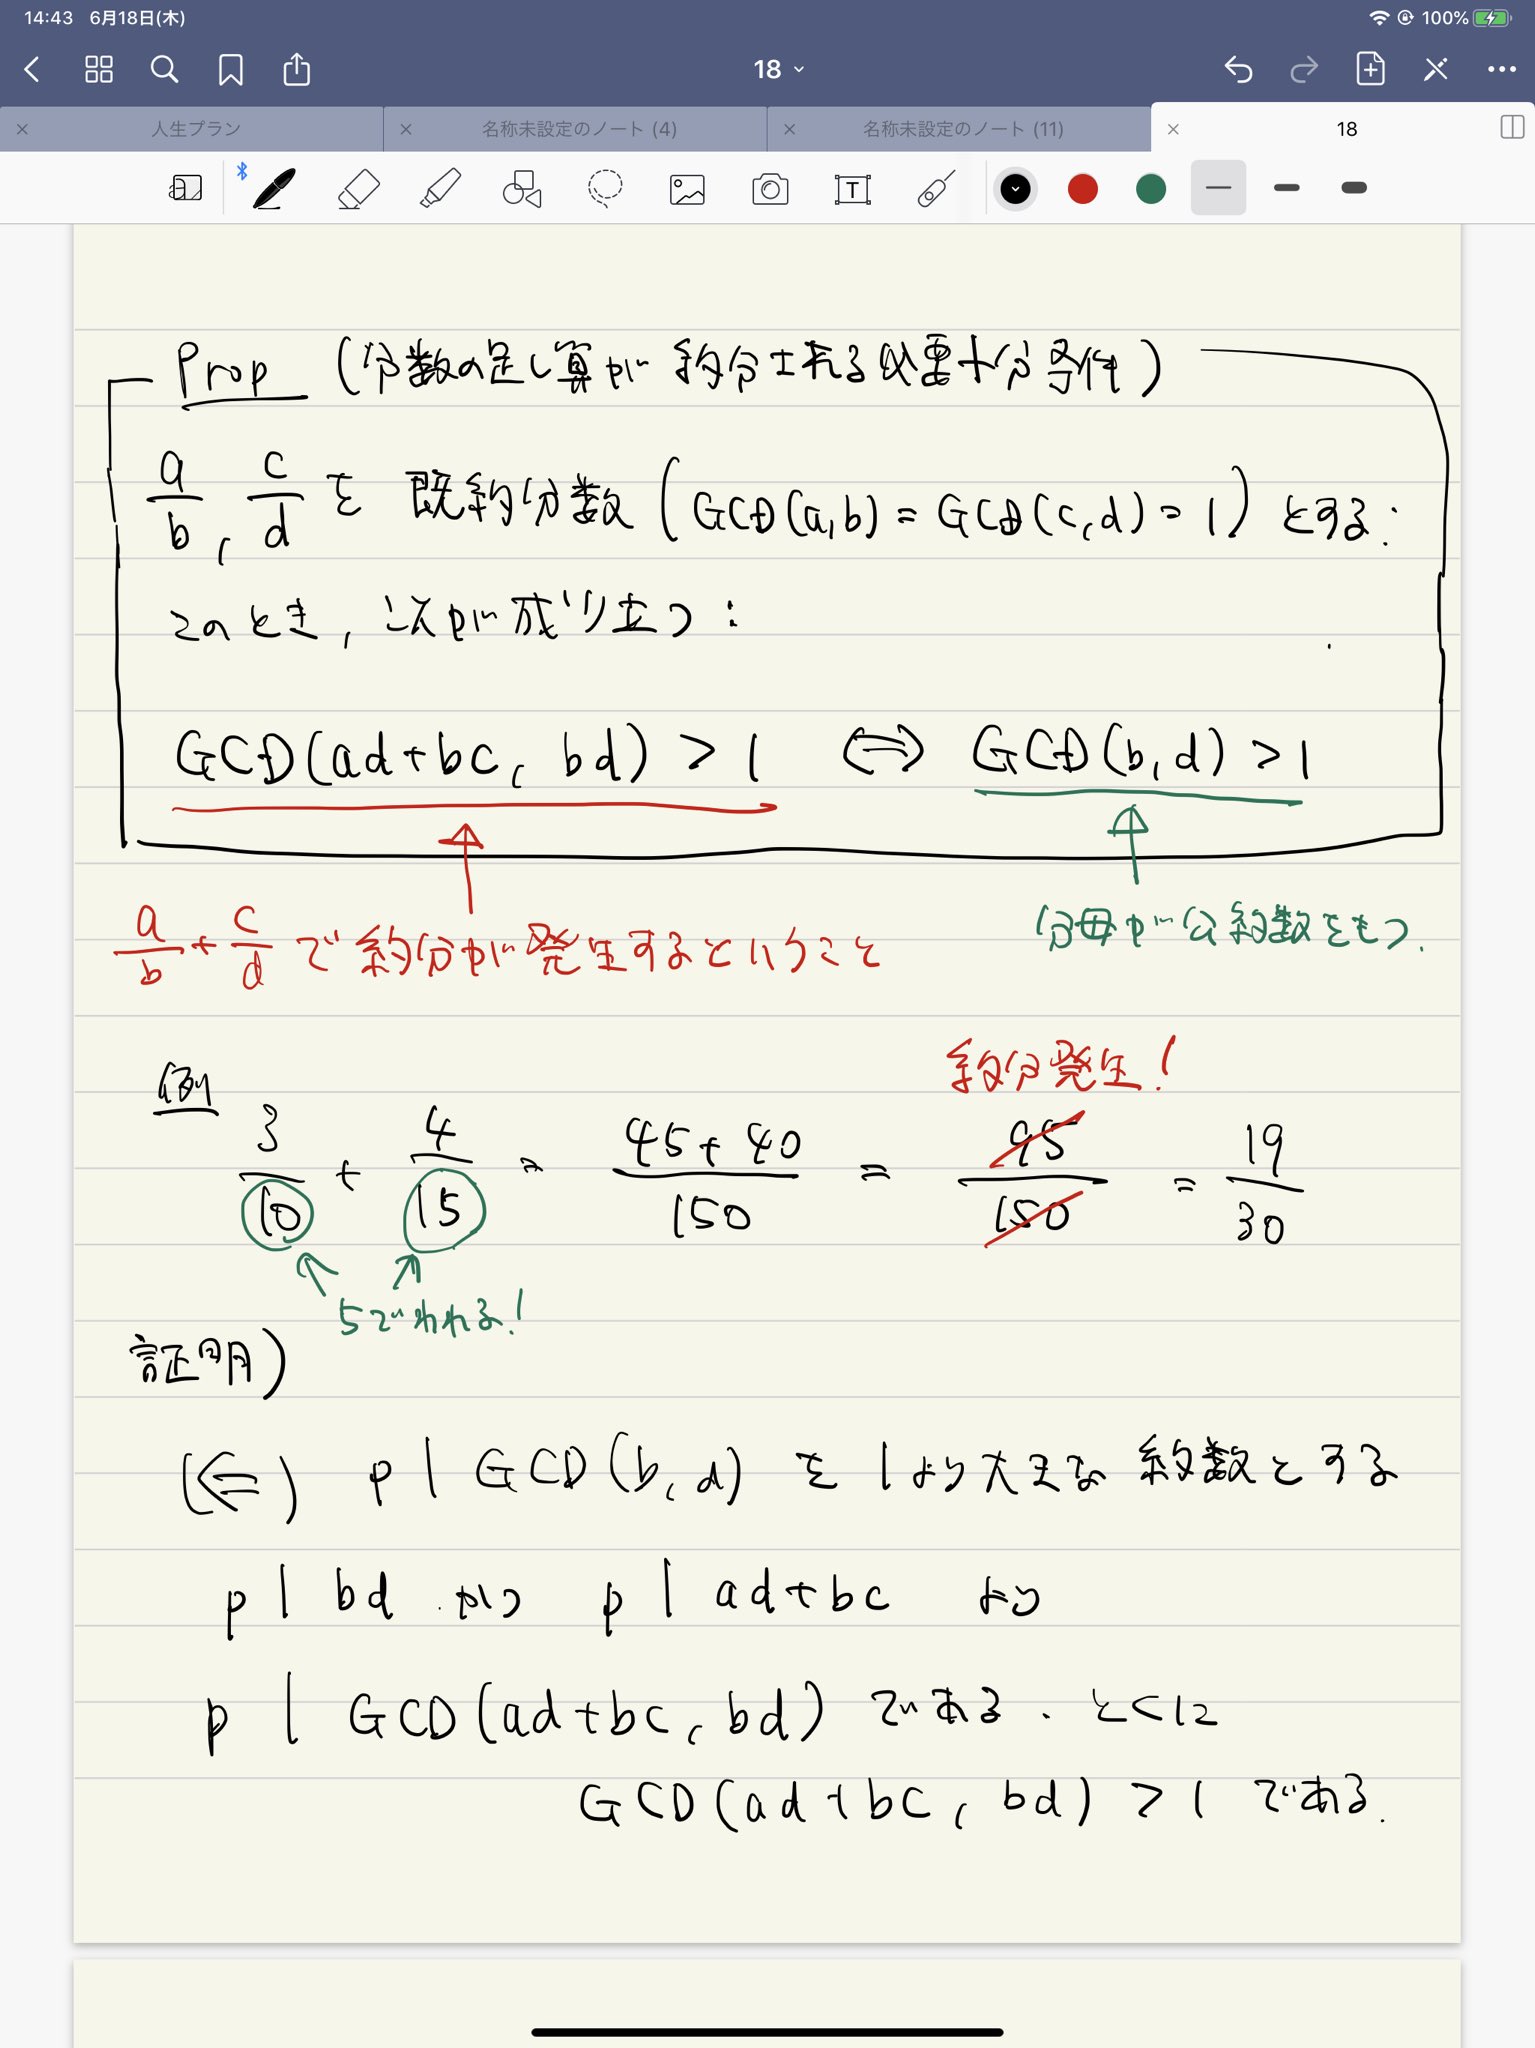 14:43 6月18日(木)
100%
18
人生プラン
名称未設定のノート (4)
名称未設定のノート (11)
18
T
Prop (分数の足し算が約分される必要十分条件)
a/b, c/d を既約分数 (GCD(a,b) = GCD(c,d) = 1) とする.
このとき, 次が成り立つ:
GCD(ad+bc, bd) > 1 ⇔ GCD(b,d) > 1
a/b + c/d で約分が発生するということ
分母が公約数をもつ.
約分発生!
例
3/10 + 4/15 = 45+40/150 = 95/150 = 19/30
5でわれる!
証明)
(⇐) p | GCD(b,d) を1より大きな約数とする
p | bd かつ p | ad+bc より
p | GCD(ad+bc, bd) である. とくに
GCD(ad+bc, bd) > 1 である.